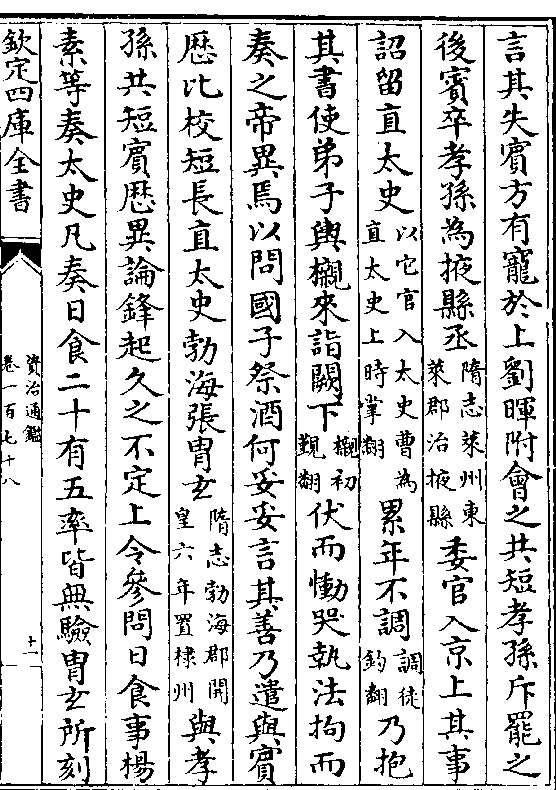 言其失賓方有寵於上劉暉附會之共短孝孫斥罷之
後賓卒孝孫為掖縣丞隋志萊州東萊郡治掖縣委官入京上其事
詔留直太史以它官入太史曹為直太史上時掌翻累年不調調徒釣翻乃抱
其書使弟子輿櫬來詣闕下櫬初覲翻伏而慟哭執法拘而
奏之帝異焉以問國子祭酒何妥妥言其善乃遣與賓
歴比校短長直太史勃海張胄玄隋志勃海郡開皇六年置棣州與孝
孫共短賓歴異論鋒起久之不定上令參問日食事楊
素等奏太史凡奏日食二十有五率皆無驗胄玄所刻
欽定四庫全書
資治通鑑
卷一百七十八
十一